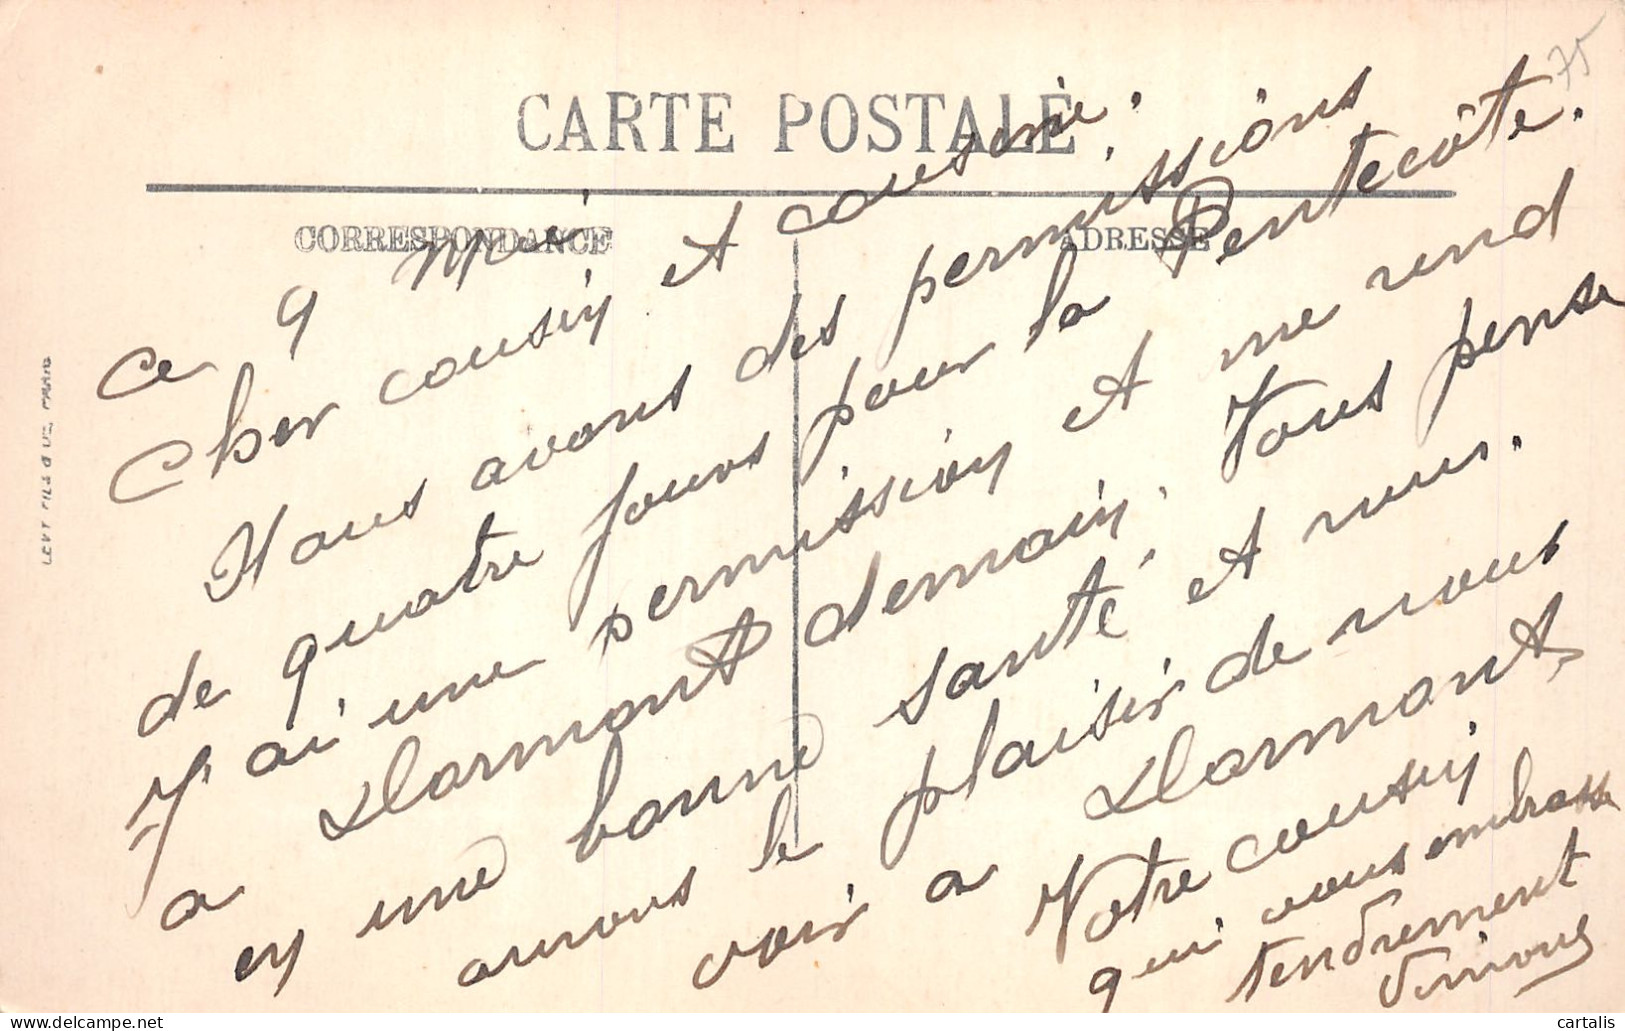 75
CARTE POSTALE
CORRESPONDANCE
ADRESSE
LEVY FILS & Cie, PARIS
Ce 9 Mai
Cher cousin et cousine :
Nous avons des permissions
de quatre jours pour la Pentecôte.
J'ai une permission et me rend
a Clarmont demain. Vous pense
en une bonne santé et nous.
aurons le plaisir de nous
voir a Clarmont
Votre cousin
qui vous embrasse
tendrement
cartalis
Delcampe.net